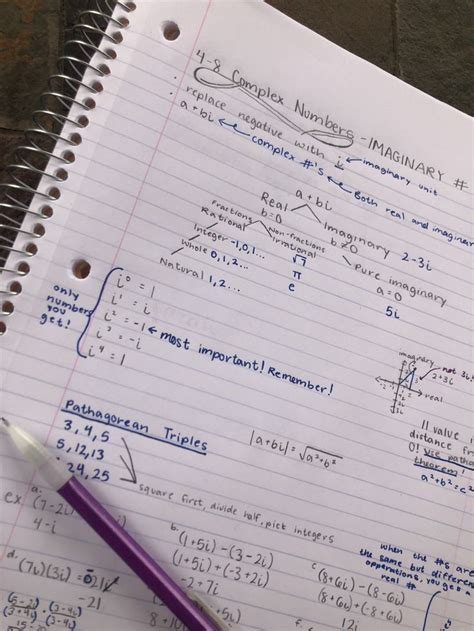 4-8 Complex Numbers - IMAGINARY #
replace negative with i ← imaginary unit
a+bi ← complex #'s ← Both real and imaginary
a+bi
Real
b=0
Imaginary
b≠0
2-3i
Pure imaginary
a=0
5i
Fractions
Rational
Non-fractions
Irrational
√7
π
e
Integer -1,0,1...
Whole 0,1,2...
Natural 1,2...
only
numbers
you
get!
i⁰ = 1
i¹ = i
i² = -1 ← most important! Remember!
i³ = -i
i⁴ = 1
imaginary
not
2+3i
real
Pathagorean Triples
3,4,5
5,12,13
24,25
square first, divide half, pick integers
|a+bi| = √a²+b²
|| value
distance
0! use
theorem!
a²+b²=c²
ex
a.
(7-2i)
4-i
b.
(1+5i)-(3-2i)
(1+5i)+(-3+2i)
-2+7i
c.
(8+6i)-(8-6i)
(8+6i)+(-8+6i)
when the #s are
the same but different
opperations, you get a
real #
d.
(7i)(3i) = 21
-21